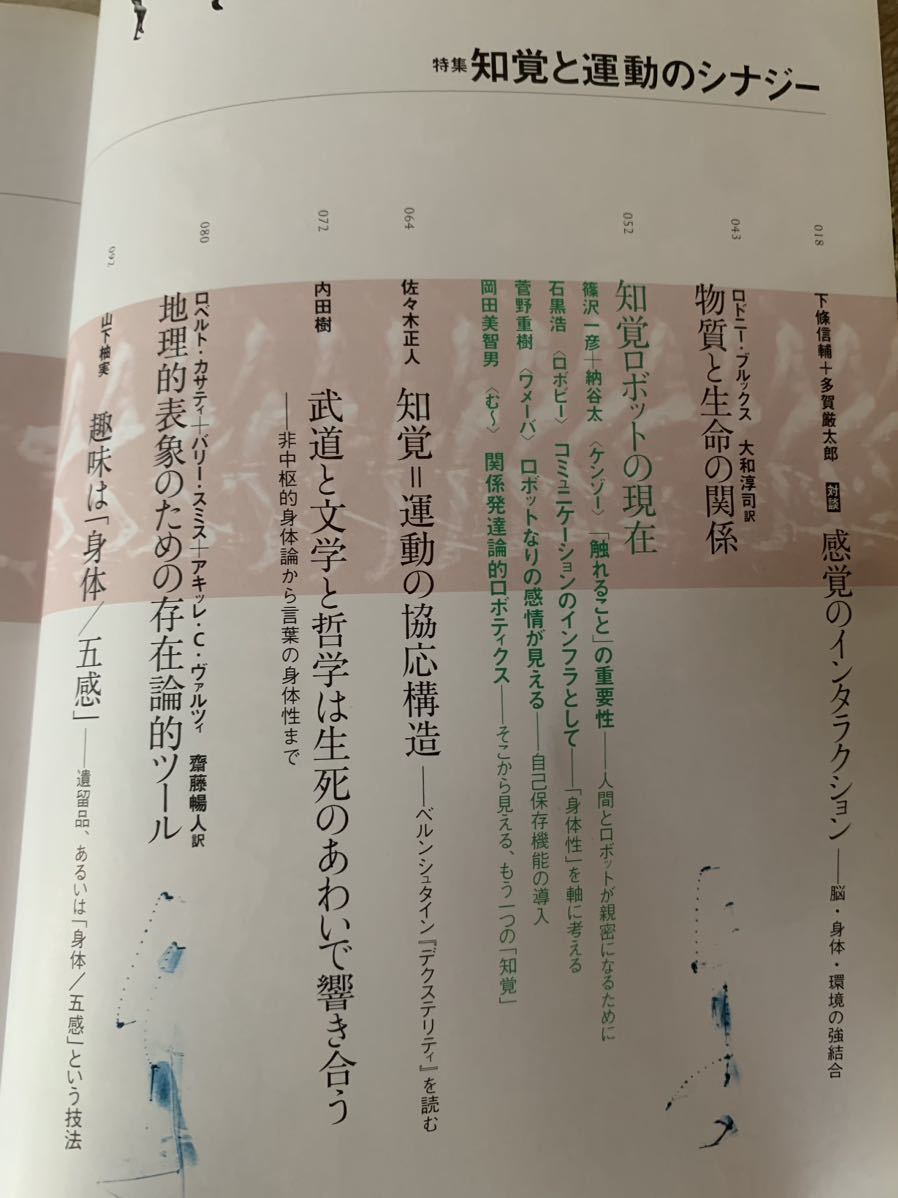 特集 知覚と運動のシナジー
018
下條信輔＋多賀厳太郎 対談 感覚のインタラクション――脳・身体・環境の強結合
043
ロドニー・ブルックス 大和淳司訳
物質と生命の関係
052
知覚ロボットの現在
篠沢一彦＋納谷太 〈ケンゾー〉 「触れること」の重要性――人間とロボットが親密になるために
石黒浩 〈ロボビー〉 コミュニケーションのインフラとして――「身体性」を軸に考える
菅野重樹 〈ワメーバ〉 ロボットなりの感情が見える――自己保存機能の導入
岡田美智男 〈む〜〉 関係発達論的ロボティクス――そこから見える、もう一つの「知覚」
064
佐々木正人 知覚＝運動の協応構造――ベルンシュタイン『デクステリティ』を読む
072
内田樹 武道と文学と哲学は生死のあわいで響き合う
――非中枢的身体論から言葉の身体性まで
080
ロベルト・カサティ＋バリー・スミス＋アキッレ・C・ヴァルツィ 齋藤暢人訳
地理的表象のための存在論的ツール
092
山下柚実 趣味は「身体／五感」――遺留品、あるいは「身体／五感」という技法